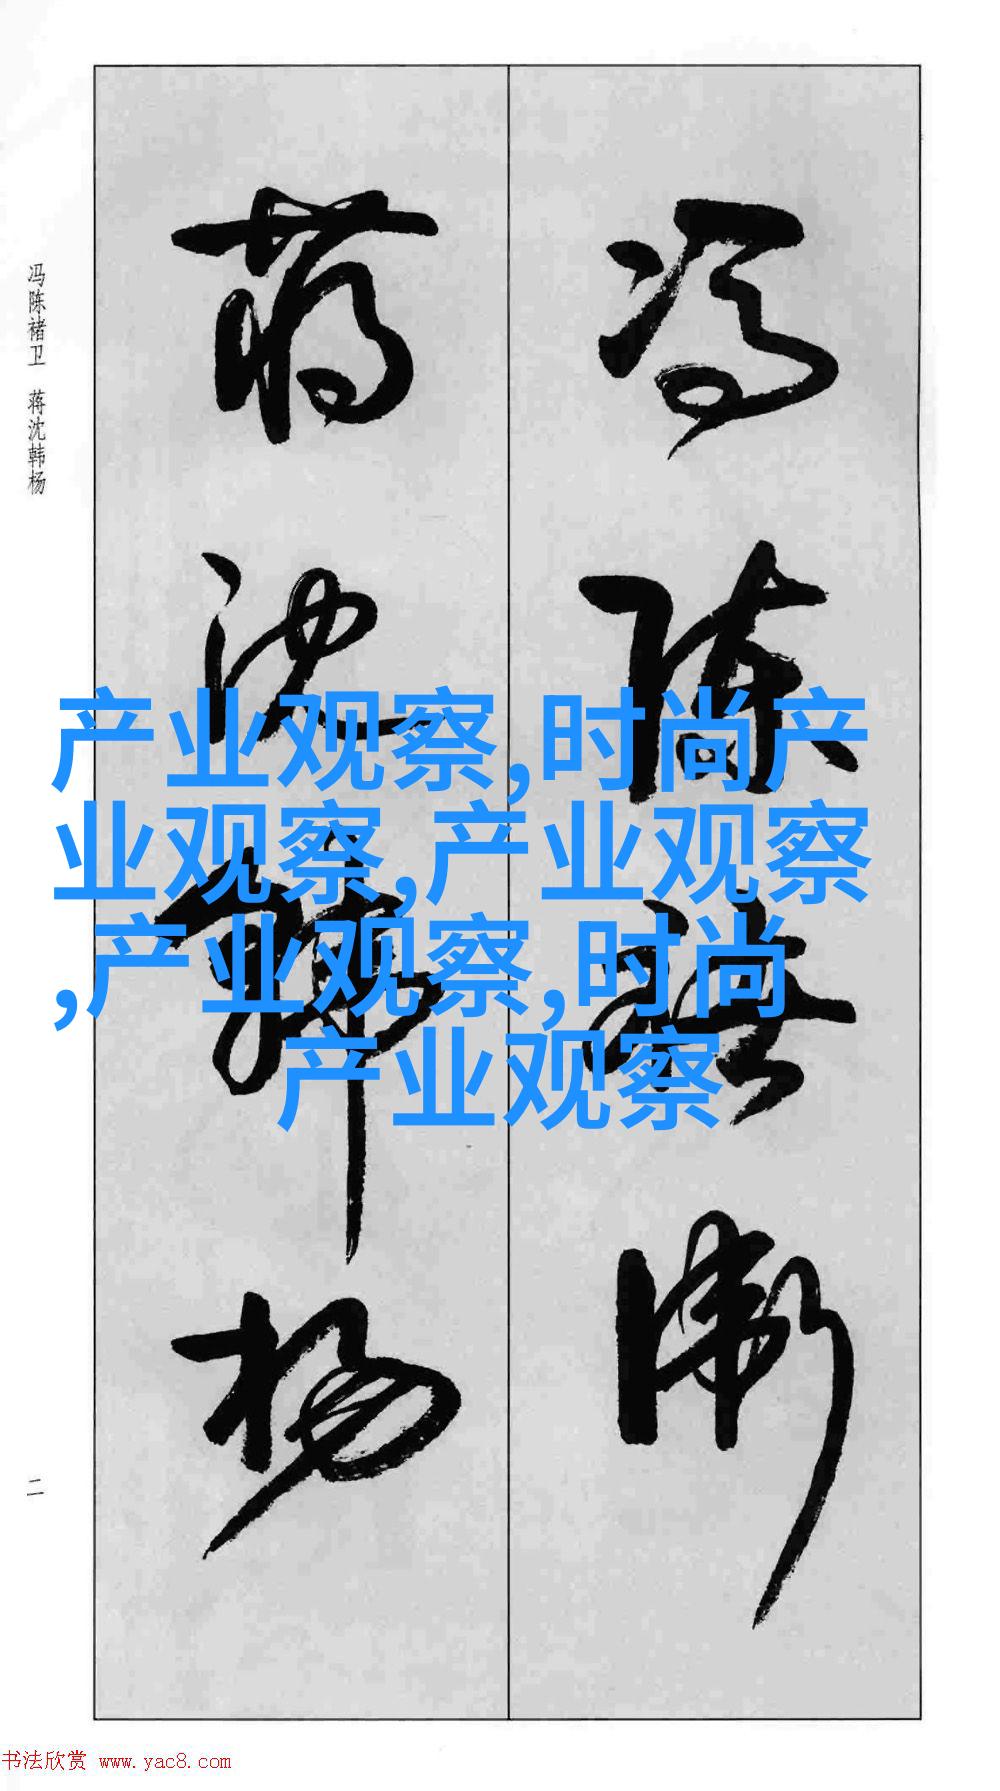 冯陈褚卫
蒋沈韩杨
冯陈褚卫 蒋沈韩杨
二
产业观察,时尚产
业观察,产业观察
,产业观察,时尚
产业观察
书法欣赏 www.yac8.com